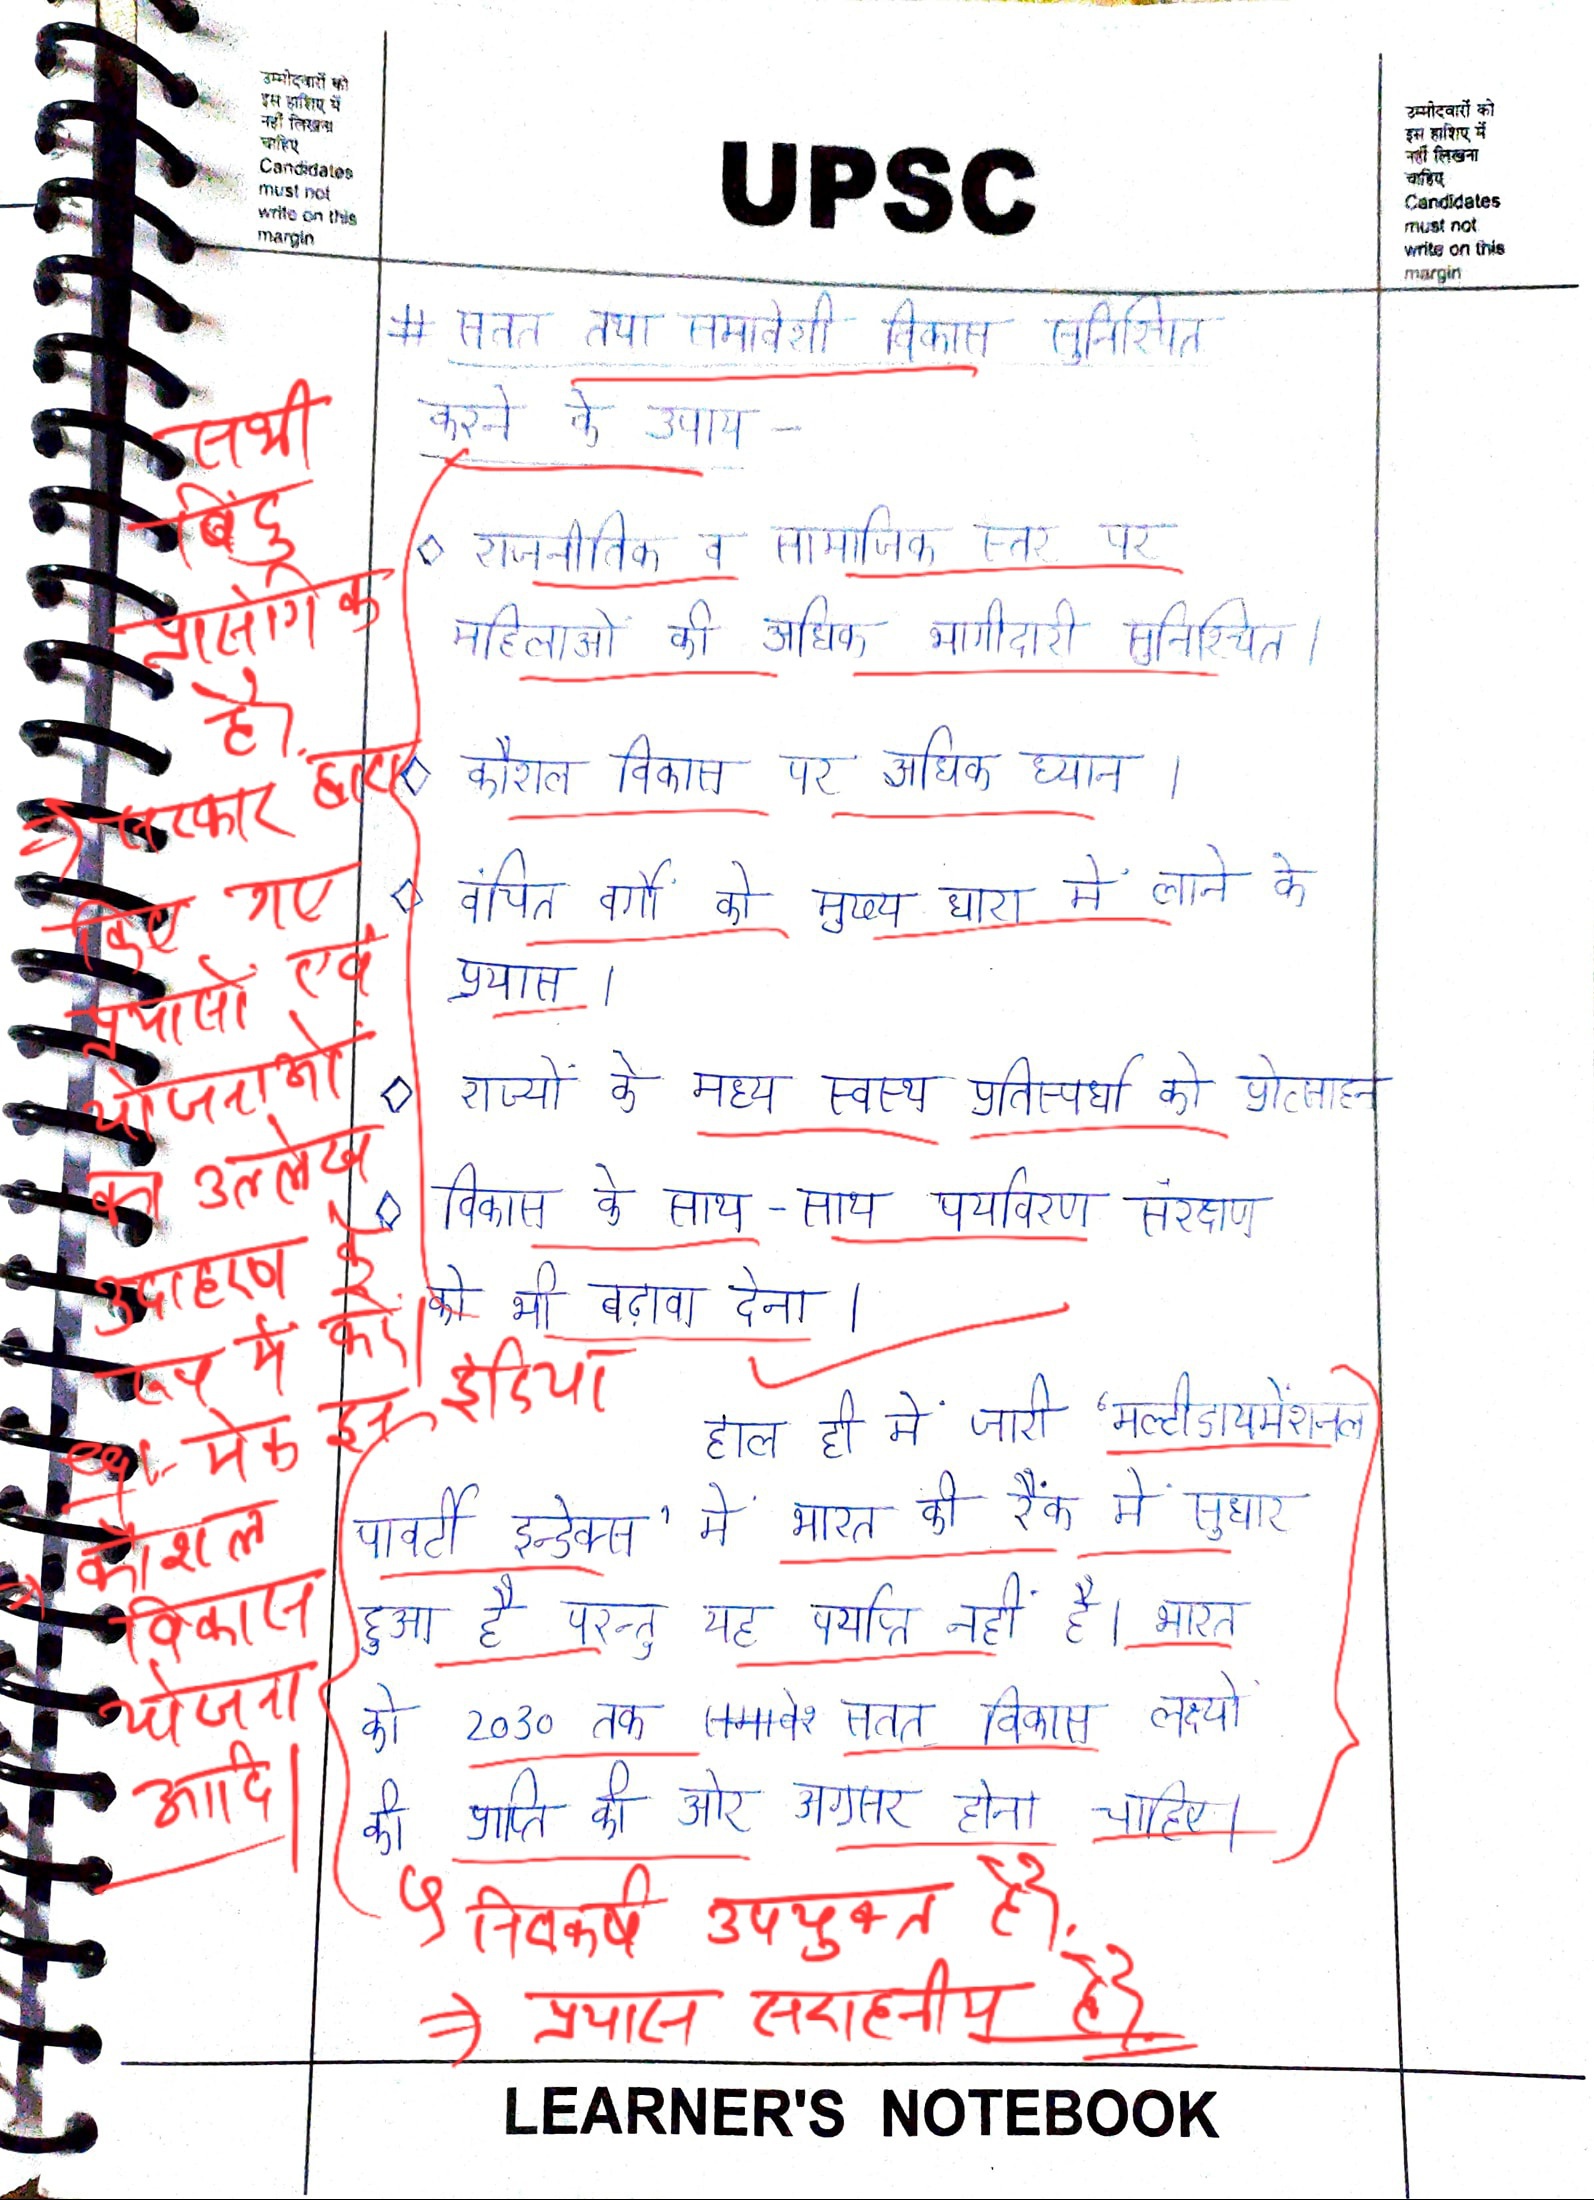 उम्मीदवारों को
इस हाशिए में
नहीं लिखना
चाहिए
Candidates
must not
write on this
margin
UPSC
उम्मीदवारों को
इस हाशिए में
नहीं लिखना
चाहिए
Candidates
must not
write on this
margin
# सतत तथा समावेशी विकास सुनिश्चित
करने के उपाय -
◇ राजनीतिक व सामाजिक स्तर पर
महिलाओं की अधिक भागीदारी सुनिश्चित।
◇ कौशल विकास पर अधिक ध्यान।
◇ वंचित वर्गों को मुख्य धारा में लाने के
प्रयास।
◇ राज्यों के मध्य स्वस्थ प्रतिस्पर्धा को प्रोत्साहन
◇ विकास के साथ-साथ पर्यावरण संरक्षण
को भी बढ़ावा देना।
हाल ही में जारी 'मल्टीडायमेंशनल
पावर्टी इन्डेक्स' में भारत की रैंक में सुधार
हुआ है परन्तु यह पर्याप्त नहीं है। भारत
को 2030 तक सतत विकास लक्ष्यों
की प्राप्ति की ओर अग्रसर होना चाहिए।
सभी
बिंदु
प्रासंगिक
है।
⇒ सरकार द्वारा
किए गए
प्रयासों एवं
योजनाओं
का उल्लेख
उदाहरण के
रूप में करें।
मेक इन इंडिया
→ कौशल
विकास
योजना
आदि।
निष्कर्ष उपयुक्त है।
⇒ प्रयास सराहनीय है।
LEARNER'S NOTEBOOK